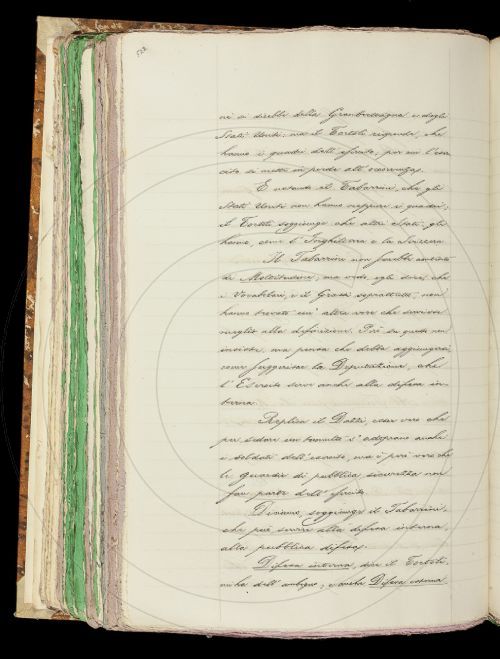 ne si direbbe della Granbrettagna e degli
Stati Uniti; ma il Tortoli risponde, che
hanno i quadri dell'esercito, per cui l'eser
cito si mette in piede all'occorrenza.
E notando il Tabarrini, che gli
Stati Uniti non hanno neppure i quadri,
il Tortoli soggiunge che altri Stati gli
hanno, come l'Inghilterra e la Svizzera.
Il Tabarrini non sarebbe contento
di Moltitudine; ma vede, egli dice, che
i Vocabolari, e il Grassi soprattutto, non
hanno trovato un'altra voce che servisse
meglio alla definizione. Più su questo non
insiste, ma pensa che debba aggiungersi,
come suggerisce la Deputazione, che
l'Esercito serve anche alla difesa in-
terna.
Replica il Dazzi, esser vero che
per sedare un tumulto s'adoprano anche
i soldati dell'esercito, ma è però vero che
le guardie di pubblica sicurezza non
fan parte dell'esercito.
Diciamo, soggiunge il Tabarrini,
che può servire alla difesa interna,
alla pubblica difesa.
Difesa interna, dice il Tortoli,
mi ha dell'ambiguo; e anche Difesa esterna